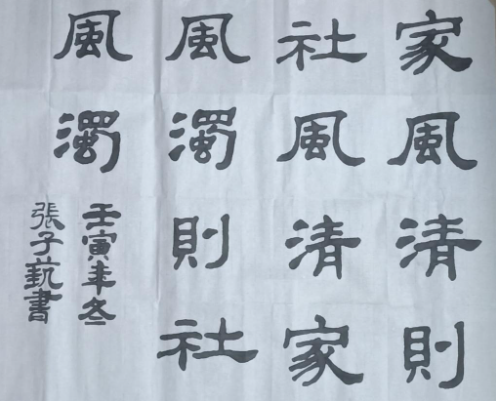 家風清則
社風清家
風濁則社
風濁
壬寅年冬
張子藝書